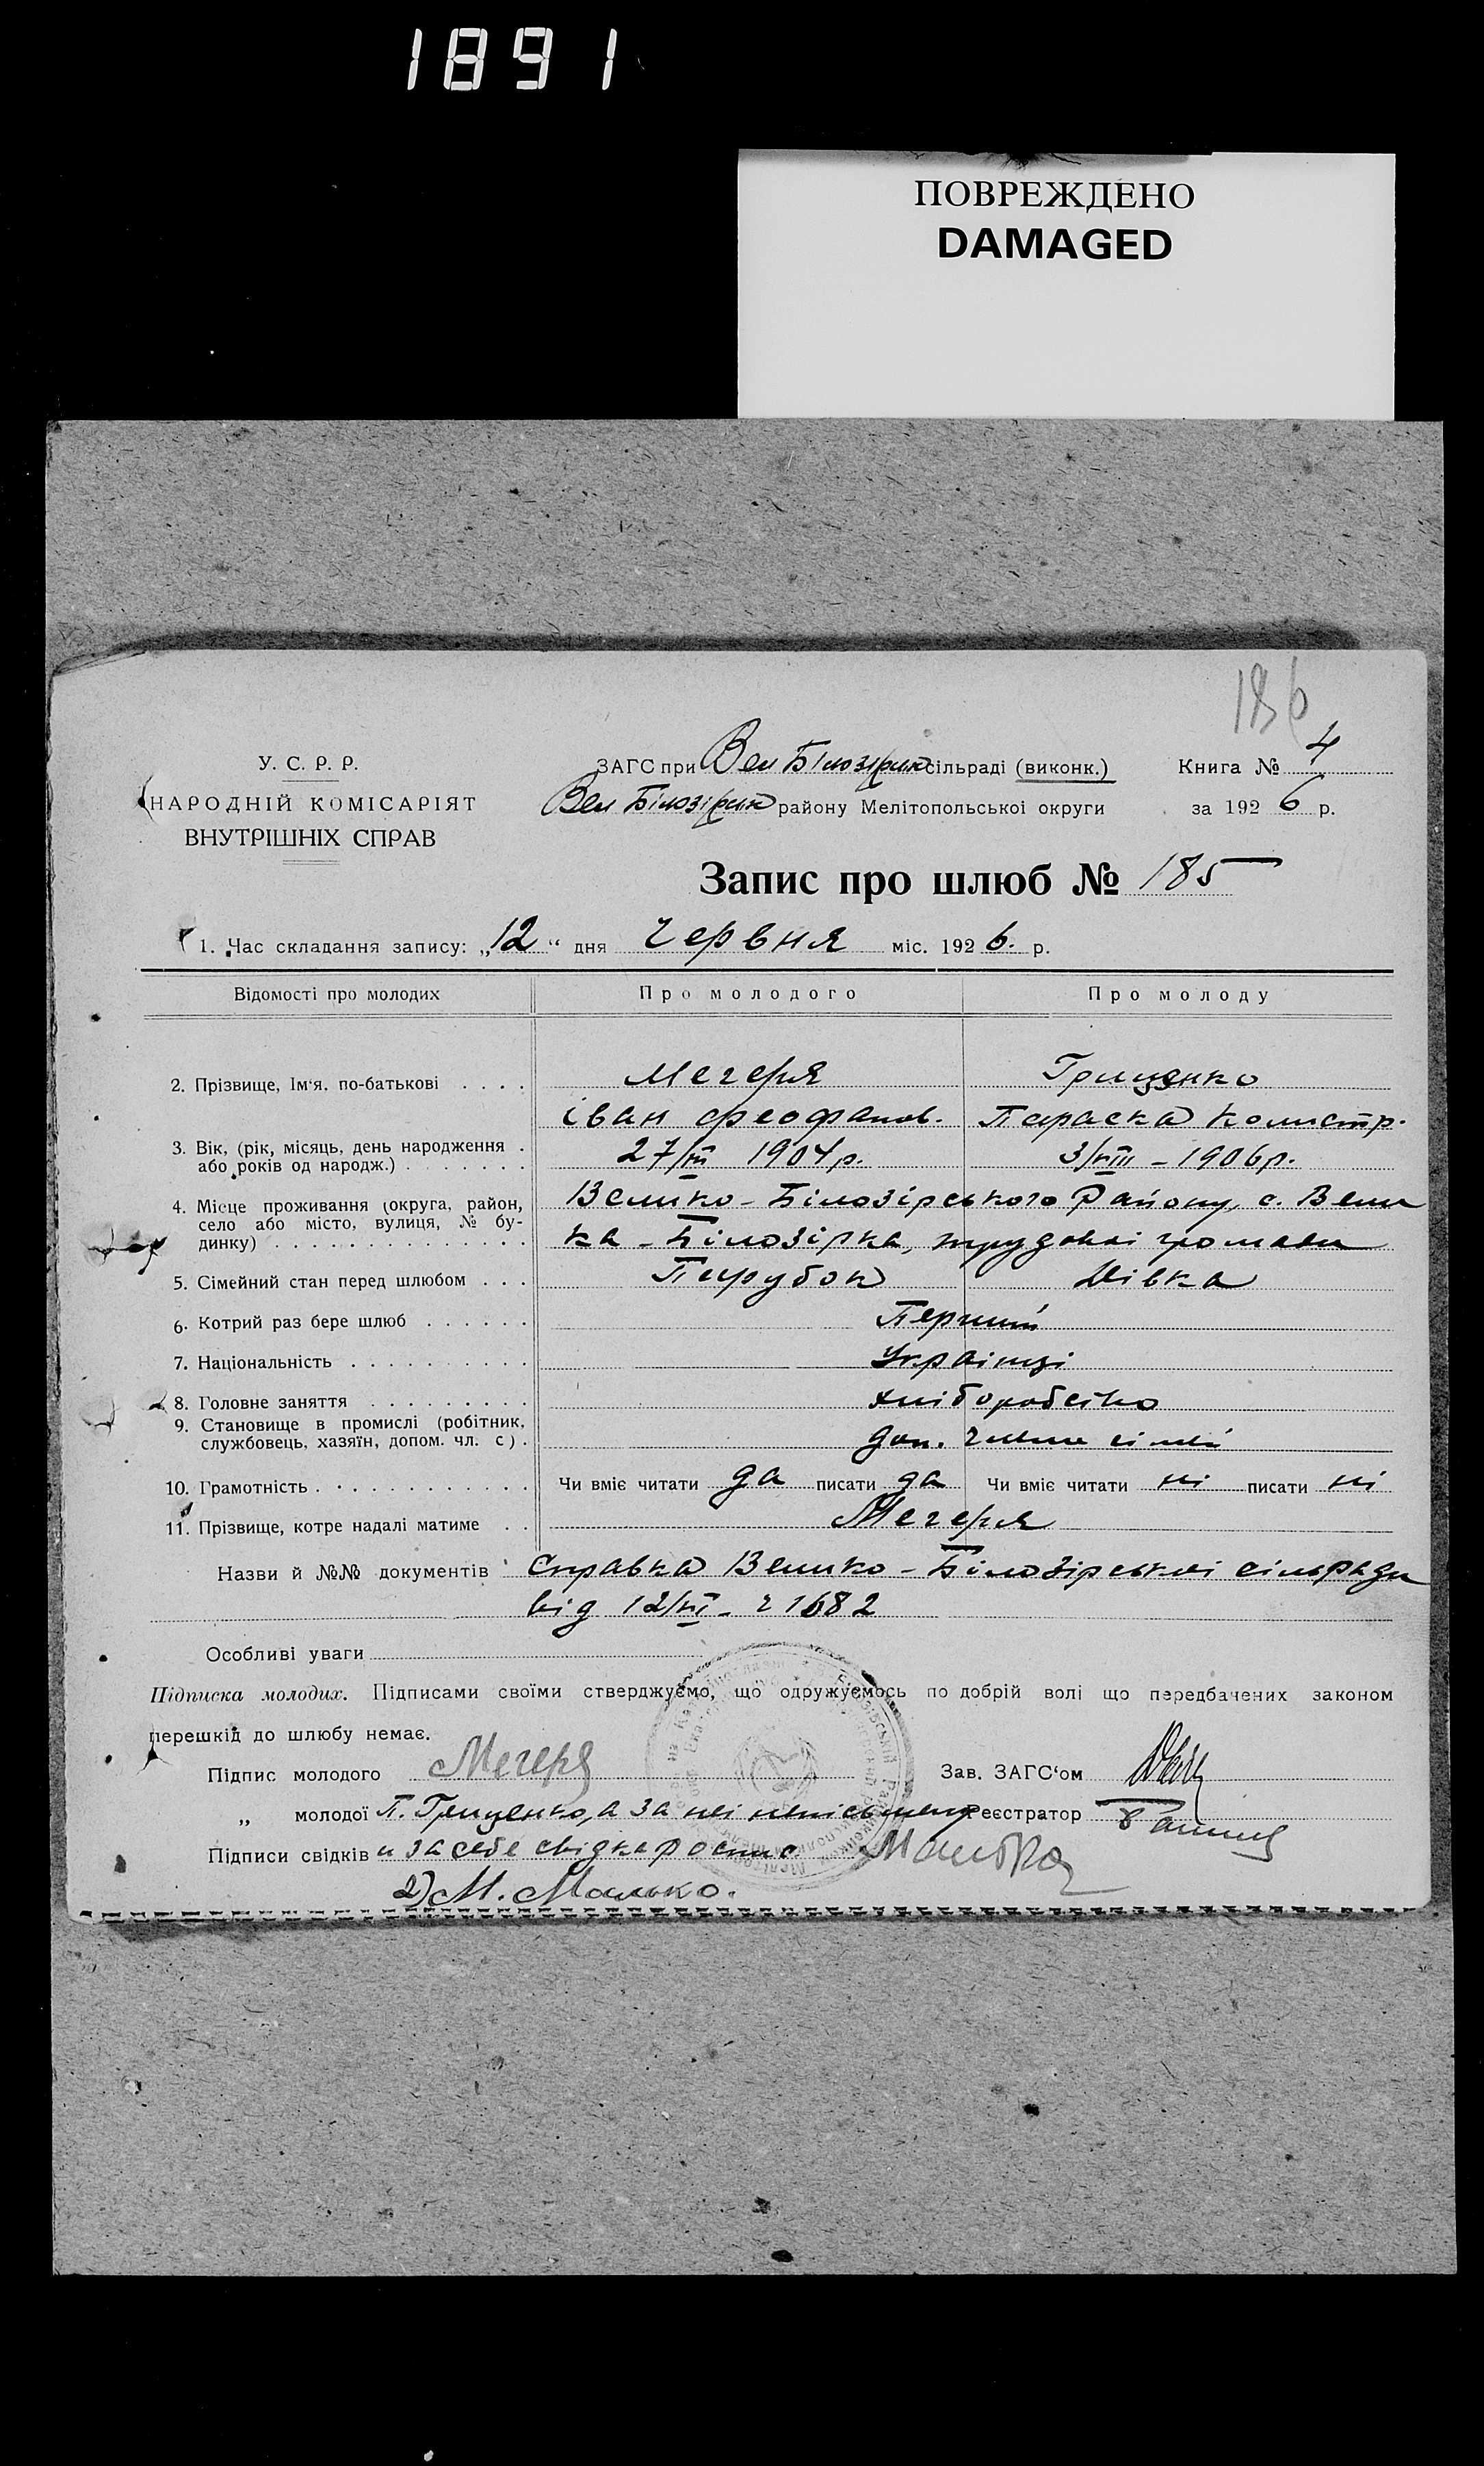 1891
ПОВРЕЖДЕНО
DAMAGED
186
У. С. Р. Р.
НАРОДНІЙ КОМІСАРІЯТ
ВНУТРІШНІХ СПРАВ
ЗАГС при Вел Білозірск сільраді (виконк.)
Вел Білозірск району Мелітопольськоі округи
Книга № 4
за 1926 р.
Запис про шлюб № 185
1. Час складання запису: „12“ дня червня міс. 1926. р.
Відомості про молодих Про молодого Про молоду
2. Прізвище, Ім'я. по-батькові . . . . Мегеря Гриценко
Іван Феофанов. Параска Калистр.
3. Вік, (рік, місяць, день народження . 27/ 1904 р. 3/VIII – 1906 р.
або років од народж.) . . . . . . .
4. Місце проживання (округа, район, Велико-Білозірського Району, с. Вели
село або місто, вулиця, № бу-
динку) . . . . . . . . . . . . . . ка-Білозірка, трудовоі громади
5. Сімейний стан перед шлюбом . . . Парубок Дівка
6. Котрий раз бере шлюб . . . . . . Перший
7. Національність . . . . . . . . . . Украінці
8. Головне заняття . . . . . . . . . хліборобство
9. Становище в промислі (робітник,
службовець, хазяїн, допом. чл. с) . доп. члени сімьі
10. Грамотність . . . . . . . . . . . Чи вміє читати да писати да Чи вміє читати ні писати ні
11. Прізвище, котре надалі матиме . . Мегеря
Назви й №№ документів Справка Велико-Білозірськоі сільради
від 12/VI – ч 1682
Особливі уваги
Підписка молодих. Підписами своїми стверджуємо, що одружуємось по добрій волі що передбачених законом
перешкід до шлюбу немає.
Підпис молодого Мегеря Зав. ЗАГС'ом
„ молодої П. Гриценко, а за неі неписьмену Реєстратор
Підписи свідків и за себе свідка роспис Малько
2) М. Малько.